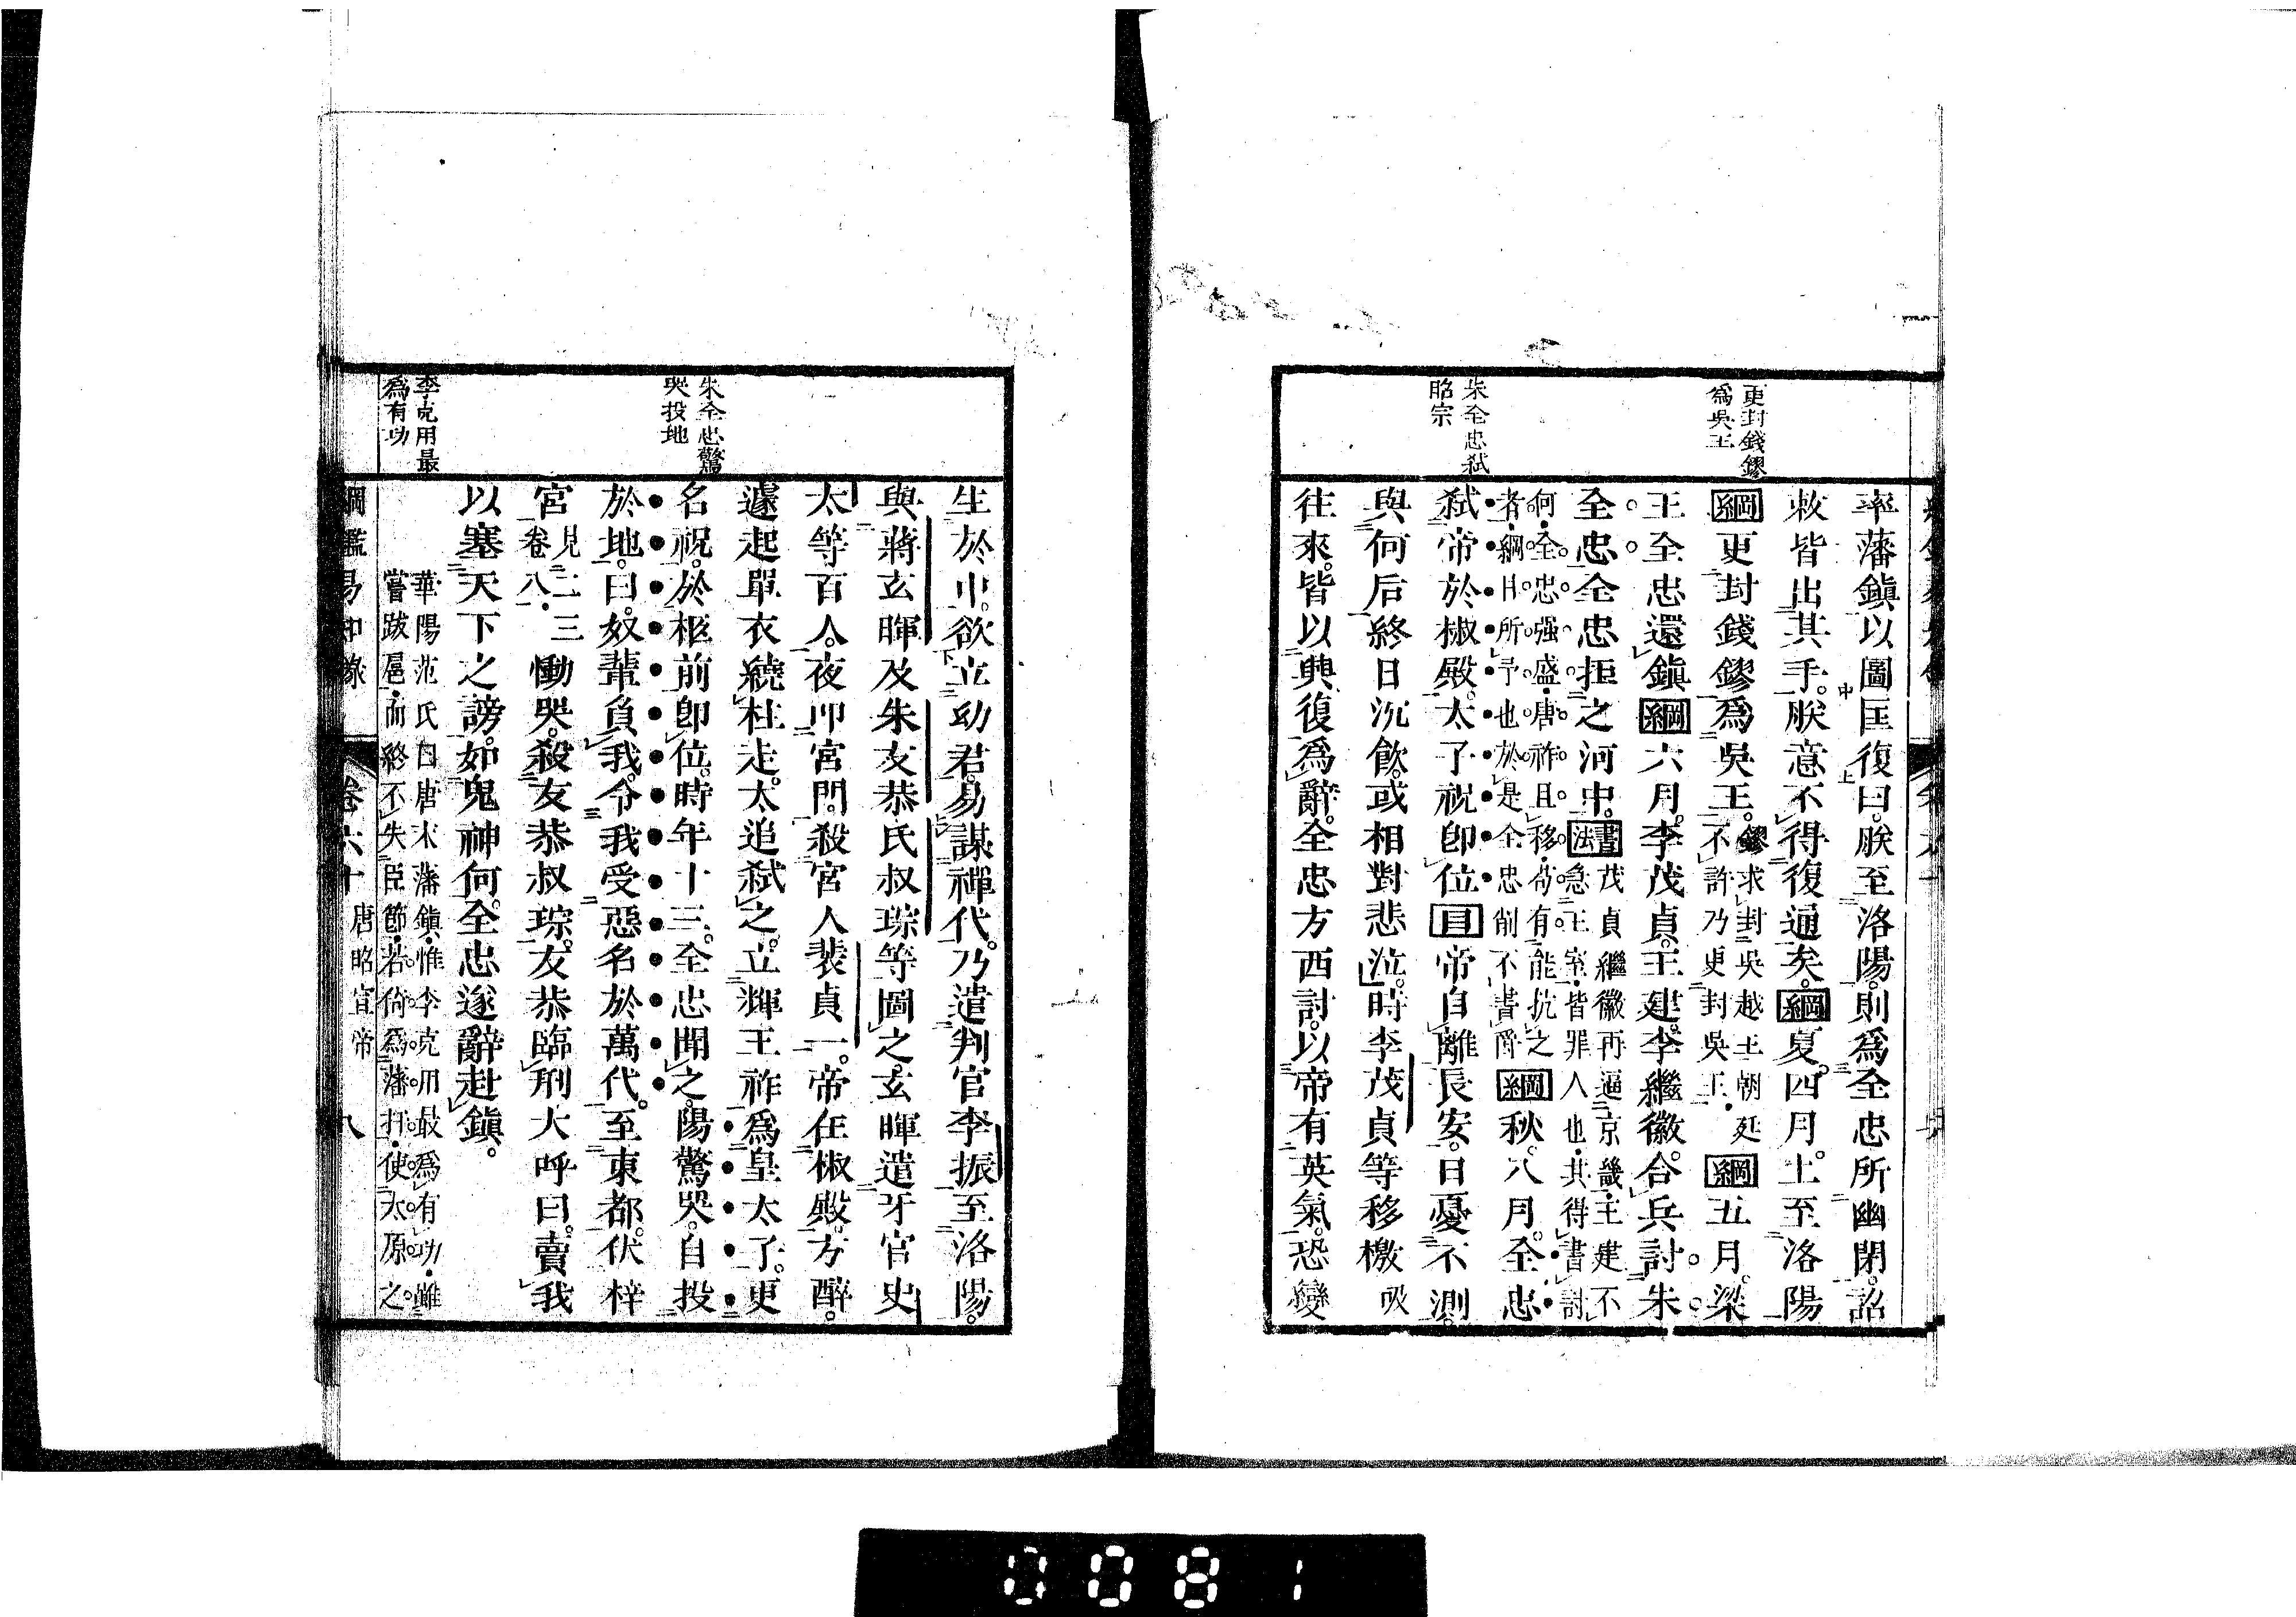 更封錢鏐
爲吳王
朱全忠弑
昭宗
率藩鎭以圖匡復曰朕至洛陽。則爲全忠所幽閉。詔
敕皆出其手。朕意不得復通矣。綱夏。四月。上至洛陽
綱更封錢鏐爲吳王。鏐求封吳越王朝廷
不許乃更封吳王。綱五月。梁
王全忠還鎭綱六月。李茂貞。王建。李繼徽。合兵討朱
全忠。全忠拒之河中。書法茂貞繼徽再逼京畿王建不
急王室皆罪人也其得書討
何全忠强盛唐祚且移苟有能抗之
者綱目所予也於是全忠削不書爵綱秋。八月。全忠
弑帝於椒殿。太子祝卽位目帝自離長安。日憂不測。
與何后終日沉飮。或相對悲泣。時李茂貞等移檄
往來。皆以興復爲辭。全忠方西討。以帝有英氣。恐變
朱全忠驚
哭投地
李克用最
爲有功
生於中。欲立幼君。易謀禪代。乃遣判官李振至洛陽。
與蔣玄暉及朱友恭氏叔琮等圖之。玄暉遣牙官史
太等百人。夜叩宮門。殺宮人裴貞一。帝在椒殿。方醉。
遽起單衣繞柱走。太追弑之。立輝王祚爲皇太子。更
名祝。於柩前卽位。時年十三。全忠聞之。陽驚哭。自投
於地。曰。奴輩負我。令我受惡名於萬代。至東都。伏梓
宮見二三
卷八慟哭。殺友恭叔琮。友恭臨刑大呼曰。賣我
以塞天下之謗。如鬼神何。全忠遂辭赴鎭。
華陽范氏曰唐末藩鎭惟李克用最爲有功雖
嘗跋扈而終不失臣節若倚爲藩扞使太原之
綱鑑易知錄 卷六十 唐昭宣帝 八
0081